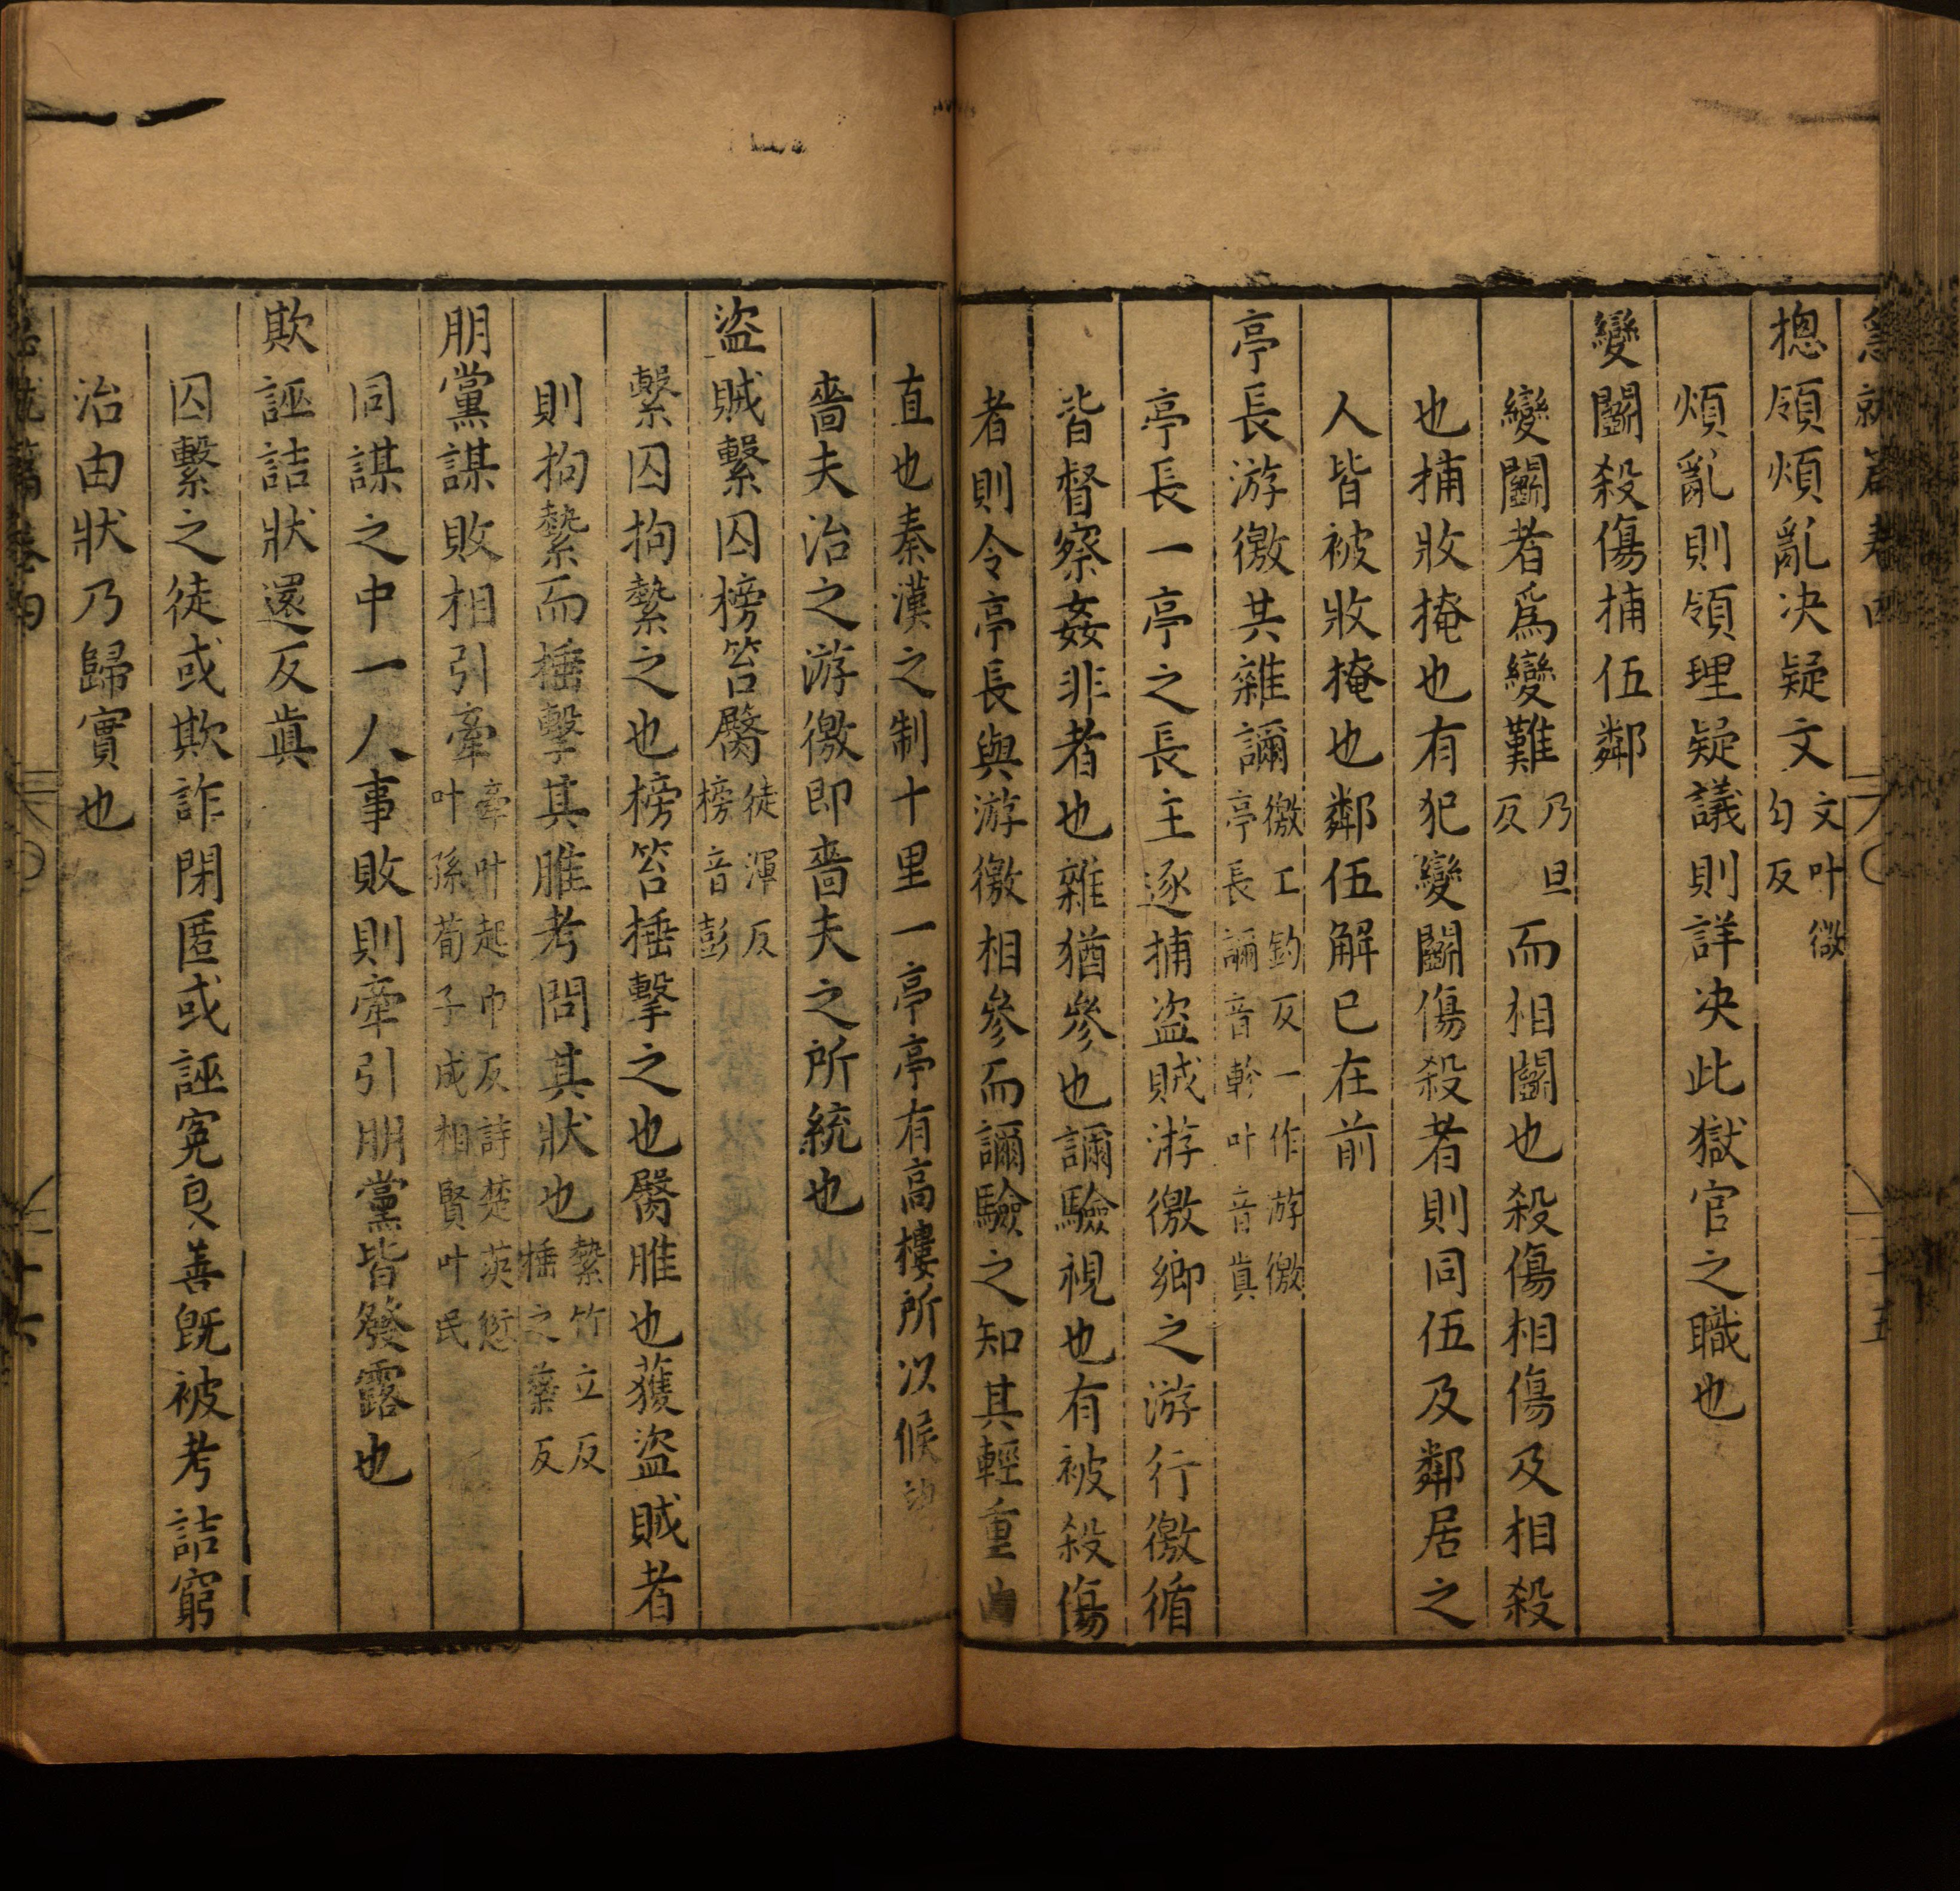 急就篇卷四
總領煩亂决疑文文叶微匀反
煩亂則領理疑議則詳决此獄官之職也
變鬭殺傷捕伍鄰
變鬭者爲變難乃旦反而相鬭也殺傷相傷及相殺
也捕收掩也有犯變鬭傷殺者則同伍及鄰居之
人皆被收掩也鄰伍解已在前
亭長游徼共雜診徼工釣反一作游徼亭長診音軫叶音眞
亭長一亭之長主逐捕盜賊游徼鄉之游行徼循
皆督察姦非者也雜猶參也診驗視也有被殺傷
者則令亭長與游徼相參而診驗之知其輕重曲
直也秦漢之制十里一亭亭有高樓所以候望
嗇夫治之游徼即嗇夫之所統也
盜賊繫囚榜笞臋徒渾反榜音彭
繫囚拘縶之也榜笞捶擊之也臋脽也獲盜賊者
則拘縶而捶擊其脽考問其狀也縶竹立反捶之蘂反
朋黨謀敗相引牽牽叶起巾反詩楚茨愆叶孫荀子成相賢叶民
同謀之中一人事敗則牽引朋黨皆發露也
欺誣詰狀還反眞
囚繫之徒或欺詐閉匿或誣寃良善旣被考詰窮
治由狀乃歸實也
急就篇卷四